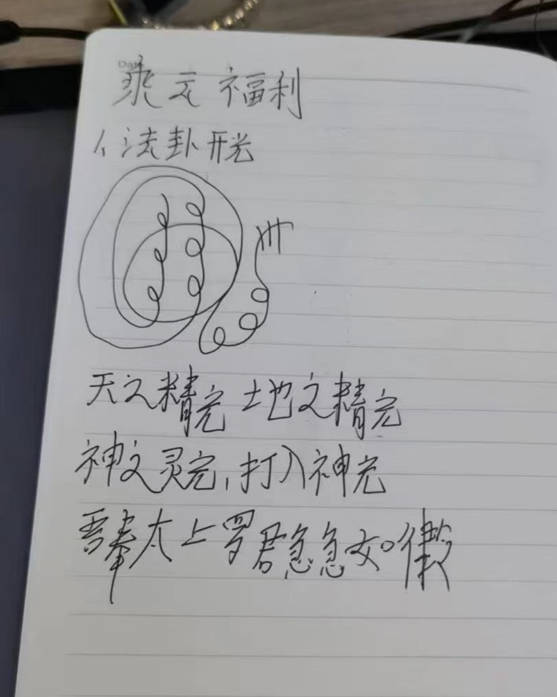 乘元福利
1、法卦开光
天之精光 土地之精光
神之灵光,打入神光
吾奉太上罗君急急如律